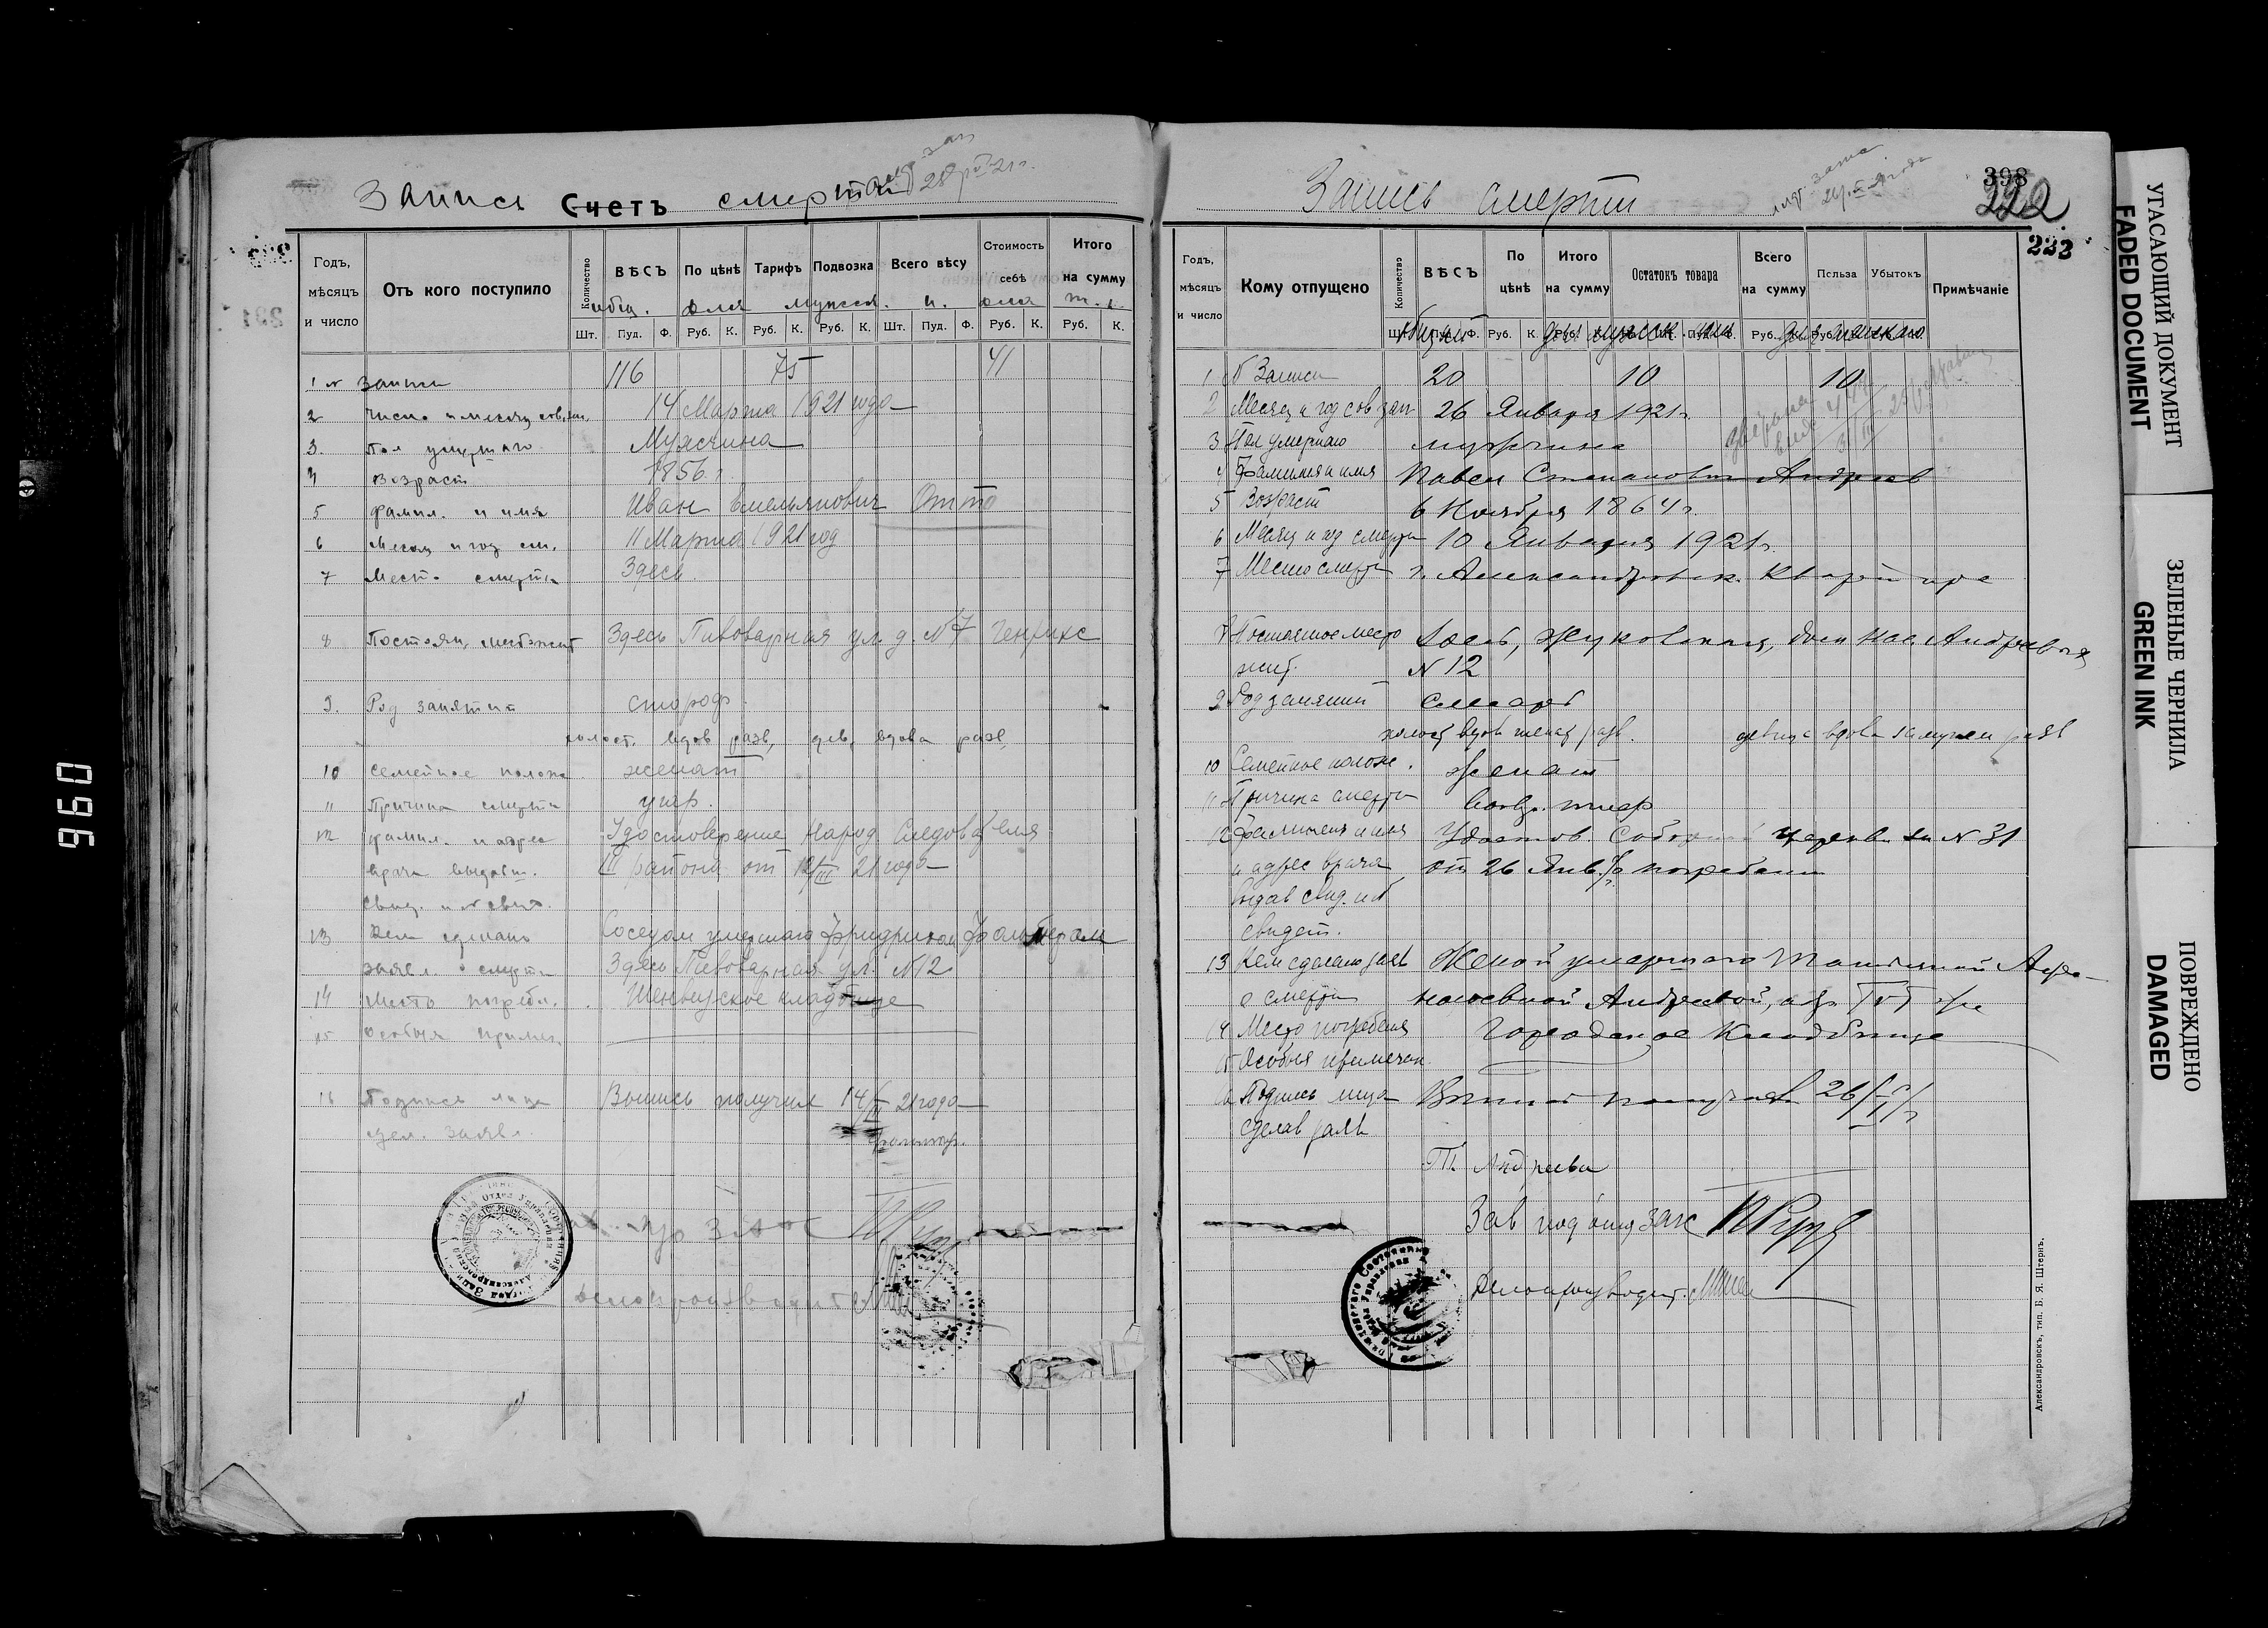 Запись Счетъ смерти
28/IV 21 г.
Годъ, мѣсяцъ и число
Отъ кого поступило
Количество
ВѢСЪ
По цѣнѣ
Тарифъ
Подвозка
Всего вѣсу
Стоимость себѣ
Итого на сумму
общ. для мужск. и. для
Шт. Пуд. Ф. Руб. К. Руб. К. Руб. К. Шт. Пуд. Ф. Руб. К. Руб. К.
1 № записи 116 75 41
2 число и месяц 14 Марта 1921 года
3. Пол умершаго Мужчина
4 возраст 1856 г.
5 фамил. и имя Иван Емельянович Отто
6 Месяц и год см. 11 Марта 1921 год
7 Место смерти Здесь.
8 Постоян. Здесь Пивоварная ул. д. №7 Генрихс
9. Род занятия сторож.
холост. вдов разв, дев, вдова разв,
10 Семейное полож. женат
11 Причина смерти угар.
12 фамил. и адрес Удостоверение Народ. Следователя
врача выдавш. III района от 12/III 21 года
свид. и №
13 Кем сделано Соседом умершаго Фридрихом
заявл. о смерти Здесь Пивоварная ул. №12
14 Место погребл. Шенвизское кладбище
15 Особыя примеч.
16 Подпись лица Выпись получил 14/III 21 года
сдел. заявл.
Делопроизводитель
Запись смерти
398
222
223
Годъ, мѣсяцъ и число
Кому отпущено
Количество
ВѢСЪ
По цѣнѣ
Итого на сумму
Остатокъ товара
Всего на сумму
Польза
Убытокъ
Примѣчаніе
Общий для мужск. для женскаго
1 № Записи 20 10 10
2 Месяц и год сов зап 26 Января 1921 г.
3 Пол умершаго мужчина
4 Фамилия и имя Павел Степанович Андреев
5 Возраст 6 Ноября 1864 г.
6 Месяц и год смерти 10 Января 1921 г.
7 Место смерти г. Александровск. Квартире
8 Постоянное место Здесь, Жуковская, дом нас. Андреевых
жит. № 12
9 Род занятий слесарь
холост вдов женат разв. девица вдова замужем разв
10 Семейное полож. женат
11 Причина смерти возвр. тиф
12 Фамилия и имя Удостов. Соборной церкви за № 31
и адрес врача от 26 Янв. о погребении
выдав свид. и №
свидет.
13 Кем сделано заяв Женой умершаго Татьяной Афа-
о смерти насьевной Андреевой, адр. тот же
14 Место погребения Городское Кладбище
15 Особыя примечан.
16 Подпись лица Выпись получила 26/I
сделав заяв
Т. Андреева
Зав под отд загс
Делопроизводит.
Александровскъ, тип. Б. Я. Штернъ.
УГАСАЮЩИЙ ДОКУМЕНТ
FADED DOCUMENT
ЗЕЛЕНЫЕ ЧЕРНИЛА
GREEN INK
ПОВРЕЖДЕНО
DAMAGED
960